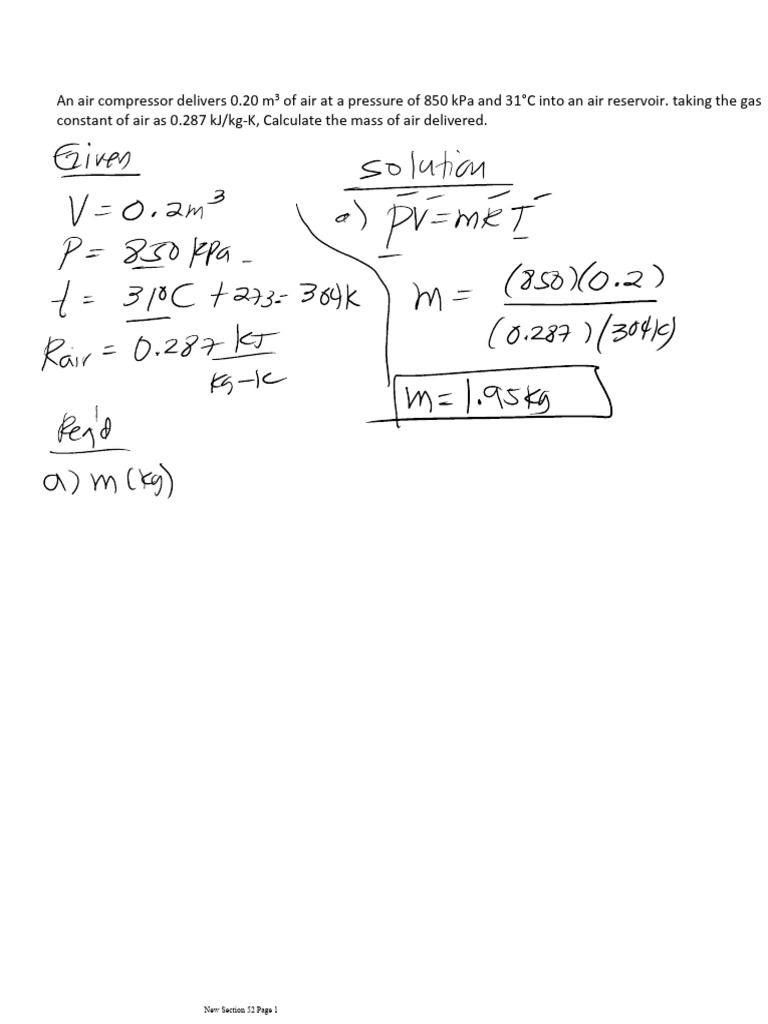 An air compressor delivers 0.20 m³ of air at a pressure of 850 kPa and 31°C into an air reservoir. taking the gas
constant of air as 0.287 kJ/kg-K, Calculate the mass of air delivered.
Given
V = 0.2m³
P = 850 kPa
t = 31°C + 273 = 304K
Rair = 0.287 kJ/kg-K
Req'd
a) m (kg)
solution
a) PV = mRT
m = (850)(0.2) / (0.287)(304K)
m = 1.95kg
New Section 52 Page 1